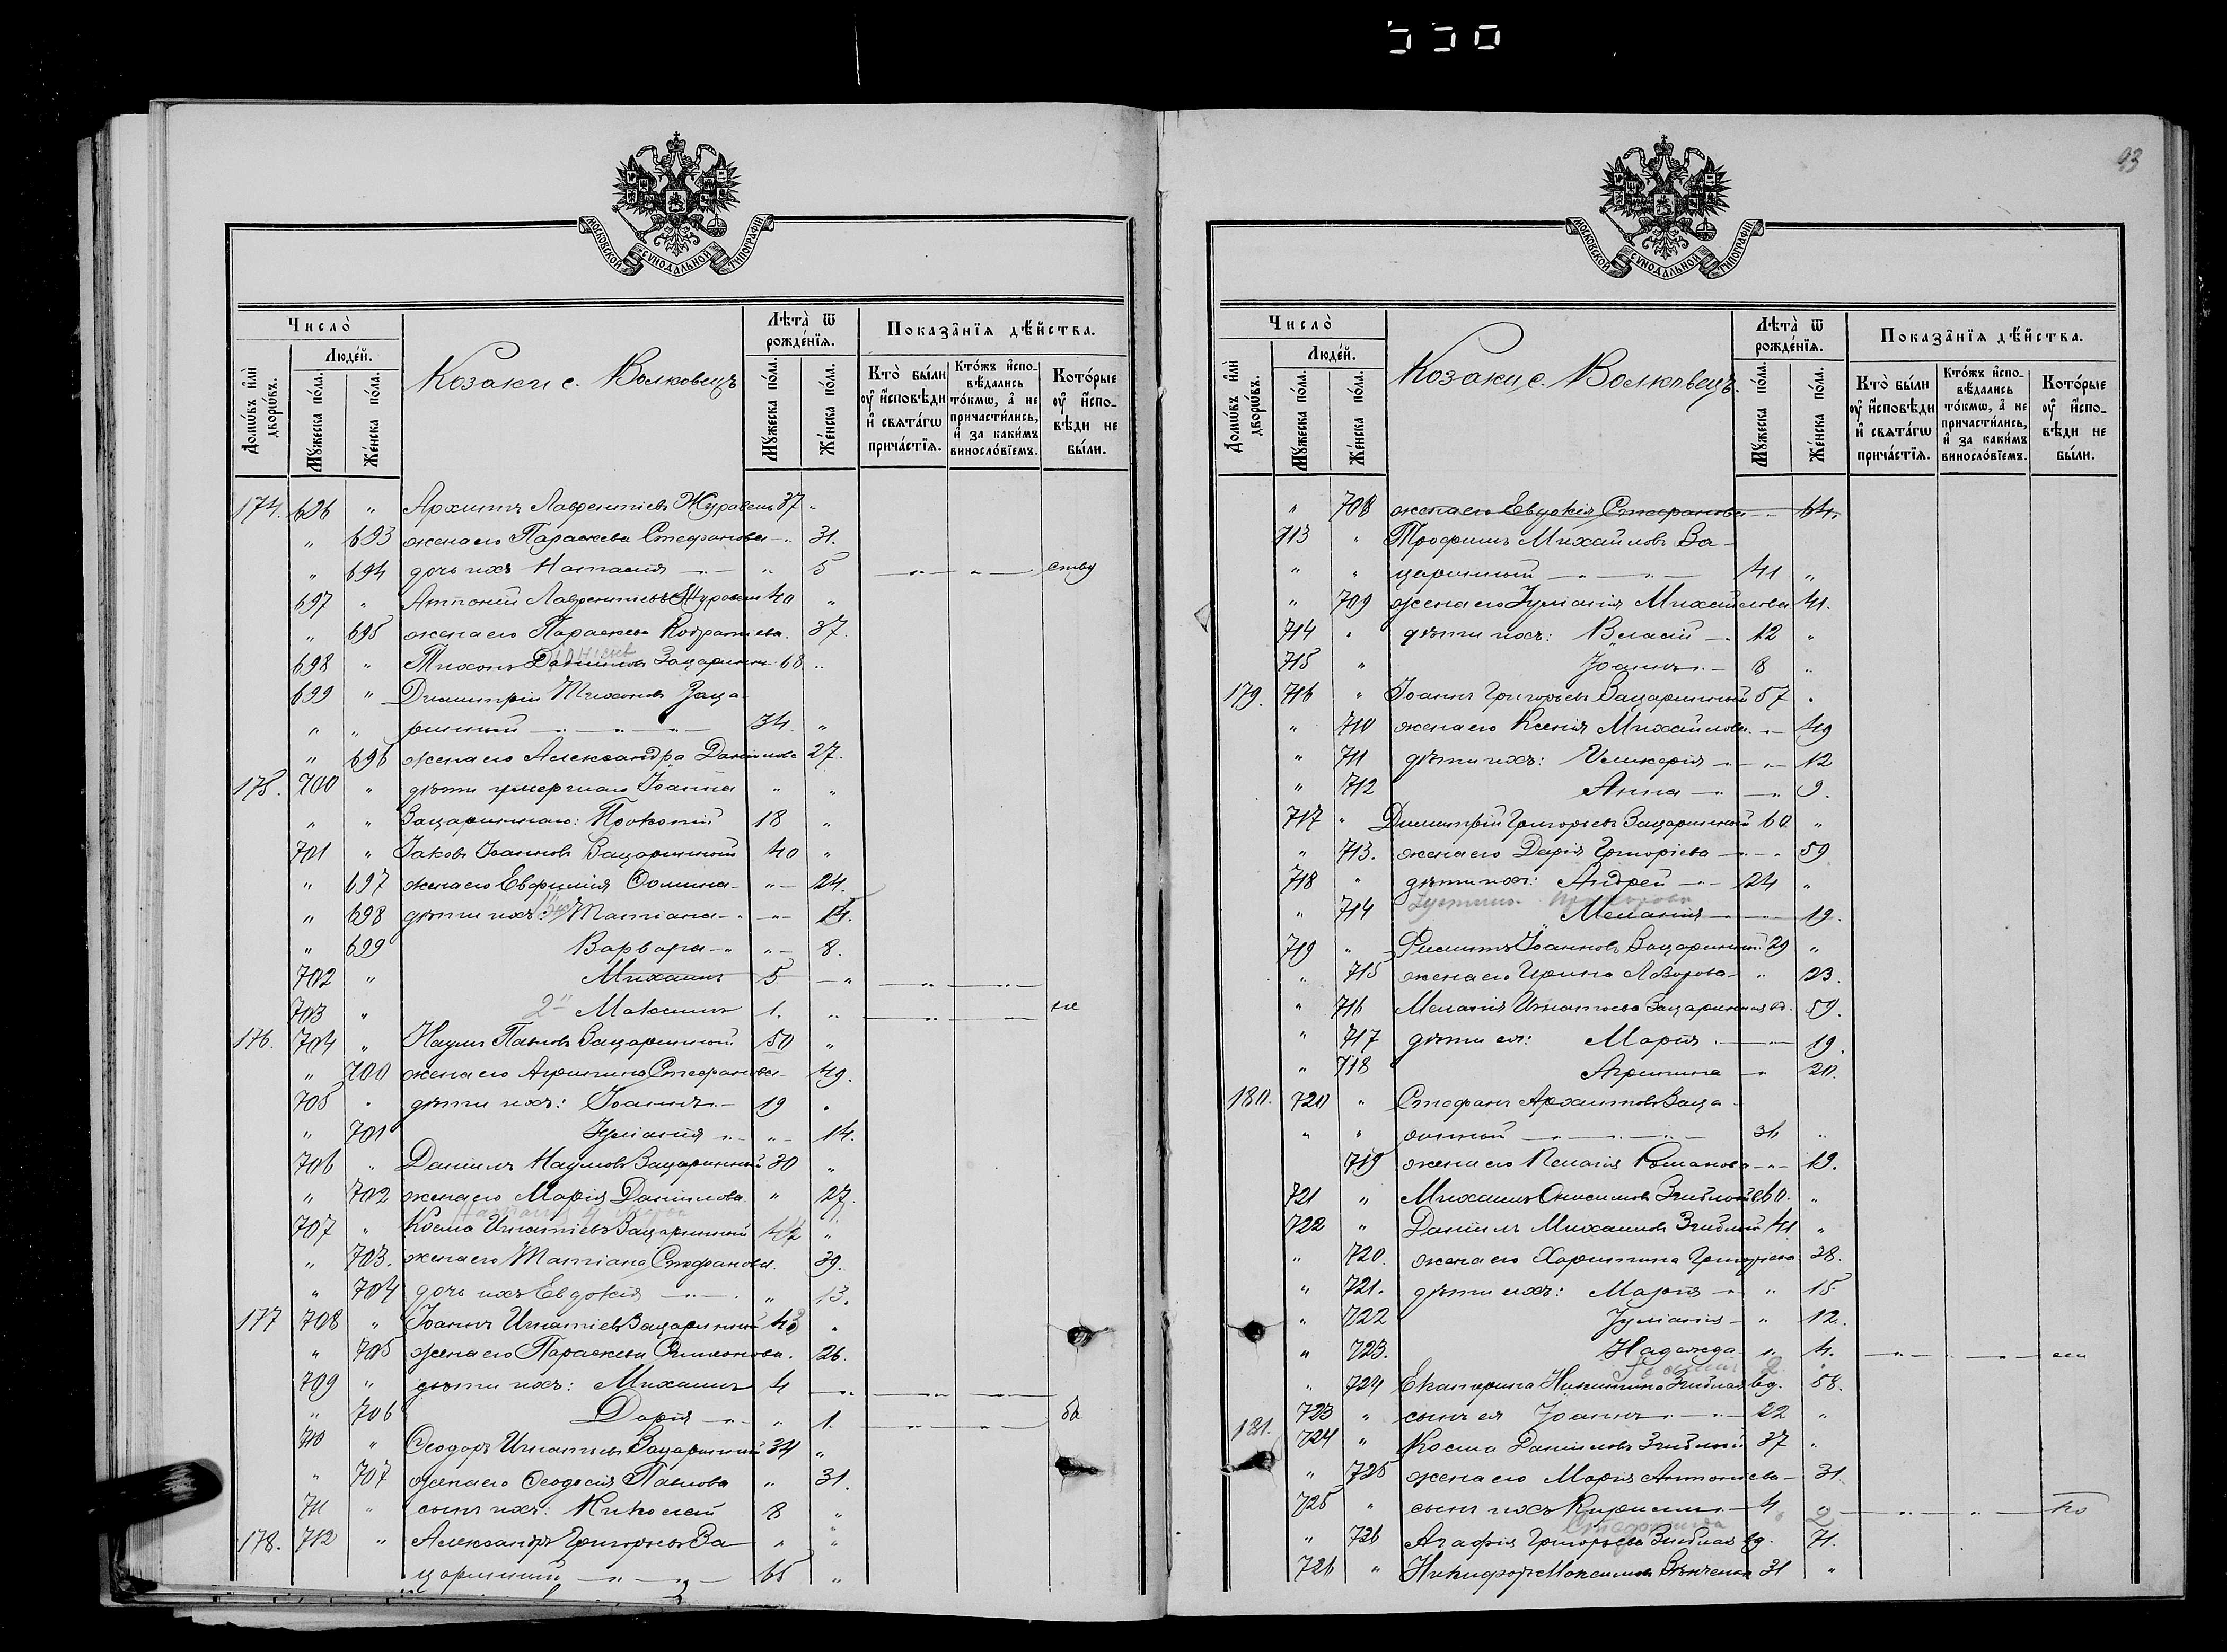 550
МОСКОВСКОЙ СѴНОДАЛЬНОЙ ТИПОГРАФІИ
Число̀
Домѡ́въ и҆лѝ дворѡ́въ.
Люде́й.
Мꙋ́жеска по́ла.
Же́нска по́ла.
Козаки с. Волковецъ
Лѣ́та ѿ рожде́нїѧ.
Мꙋ́жеска по́ла.
Же́нска по́ла.
Показа̑нїѧ дѣ́йства.
Кто̀ бы́ли оу҆ и҆́сповѣди и҆ свѧта́гѡ прича́стїѧ.
Кто́жъ и҆спо-вѣ́дались то́кмѡ, а҆ не причасти́лись, и҆ за каки́мъ виносло́вїемъ.
Кото́рые оу҆ и҆́спо-вѣди не бы́ли.
174. 696 " Архипъ Лаврентіевъ Журавель 37 "
" 693 жена его Параскева Стефанова - " 31.
" 694 дочь ихъ Наталія " 5 ству
697 " Антоній Лаврентіевъ Журавель 40 "
" 695 жена его Параскева Кодратіева. 37.
698 " Тихонъ Даніиловъ Зацаринный 68 "
699 " Димитрій Тихоновъ Заца-
" " ринный 34. "
" 696 жена его Александра Даніилова 27.
175. 700 " дѣти умершаго Іоанна " "
" " Зацариннаго: Прокопій 18 "
701 " Іаковъ Іоанновъ Зацаринный 40 "
" 697 жена его Евфимія Фомина - " - 24.
" 698 дѣти ихъ: Татіана - " - 14.
" 699 Варвара - " - 8.
702 " Михаилъ 5 - "
703 " 2 Максимъ 1. " не
176. 704 " Наумъ Павловъ Зацаринный 50 "
" 700 жена его Агрипина Стефанова 49.
705 " дѣти ихъ: Іоаннъ - 19 "
" 701 Іуліанія " - 14.
706 " Даніилъ Наумовъ Зацаринный 30 "
" 702 жена его Марія Даніилова " 27.
707 " Косма Игнатіевъ Зацаринный 42 "
" 703. жена его Татіана Стефанова. 39.
" 704 дочь ихъ Евдокія " 13.
177 708 " Іоаннъ Игнатіевъ Зацаринный 43 "
" 705 жена его Параскева Симеонова. 26.
709 " дѣти ихъ: Михаилъ 4 "
" 706 Дарія " 1. бы
710 " Ѳеодоръ Игнатьевъ Зацаринный 34 "
" 707 жена его Ѳеодосія Павлова " 31.
711 " сынъ ихъ: Николай 8 "
178. 712 " Александръ Григорьевъ За- " "
царинный 65 "
93
МОСКОВСКОЙ СѴНОДАЛЬНОЙ ТИПОГРАФІИ
Число̀
Домѡ́въ и҆лѝ дворѡ́въ.
Люде́й.
Мꙋ́жеска по́ла.
Же́нска по́ла.
Козаки с. Волковецъ.
Лѣ́та ѿ рожде́нїѧ.
Мꙋ́жеска по́ла.
Же́нска по́ла.
Показа̑нїѧ дѣ́йства.
Кто̀ бы́ли оу҆ и҆́сповѣди и҆ свѧта́гѡ прича́стїѧ.
Кто́жъ и҆спо-вѣ́дались то́кмѡ, а҆ не причасти́лись, и҆ за каки́мъ виносло́вїемъ.
Кото́рые оу҆ и҆́спо-вѣди не бы́ли.
" 708 жена его Евдокія Стефанова - " 64.
713 " Трофимъ Михайловъ За-
" " царинный 41 "
" 709 жена его Іуліанія Михайлова 41.
714 " дѣти ихъ: Власій 12 "
715 " Іоаннъ 8 "
179. 716 " Іоаннъ Григорьевъ Зацаринный 57 "
" 710 жена его Ксенія Михайлова - 49
" 711 дѣти ихъ: Гликерія - " 12
" 712 Анна - " 9.
717 " Димитрій Григорьевъ Зацаринный 60. "
" 713. жена его Дарія Григоріева - " 59
718 " дѣти ихъ: Андрей - 24 "
" 714 Меланія - 19.
719 " Филиппъ Іоанновъ Зацаринный 29 "
" 715 жена его Ирина Лазорова - " 23.
" 716 Меланія Игнатьева Зацаринная вд. 59.
" 717 дѣти ея: Марія 19.
" 718 Агрипина " 20.
180. 720 " Стефанъ Архиповъ Заца-
" " ринный 36 "
719 жена его Пелагія Романова - " 19.
721 " Михаилъ Онисимовъ Згиблый 60. "
722 " Даніилъ Михаиловъ Згиблый 41 "
" 720. жена его Харитина Григорьева 38.
" 721. дѣти ихъ: Марія " 15
" 722 Іуліанія - " 12.
" 723. Надежда " 4.
" 724 Екатерина Никитина Згиблая вд. 58.
723 " сынъ ея Іоаннъ 22 "
181. 724 " Косма Даніиловъ Згиблый 37 "
" 725 жена его Марія Антоніева - 31
725 " сынъ ихъ Кириллъ 4 2 но
" 726 Агафія Григорьева Згиблая вд. 71.
726 " Никифоръ Максимовъ 31 "